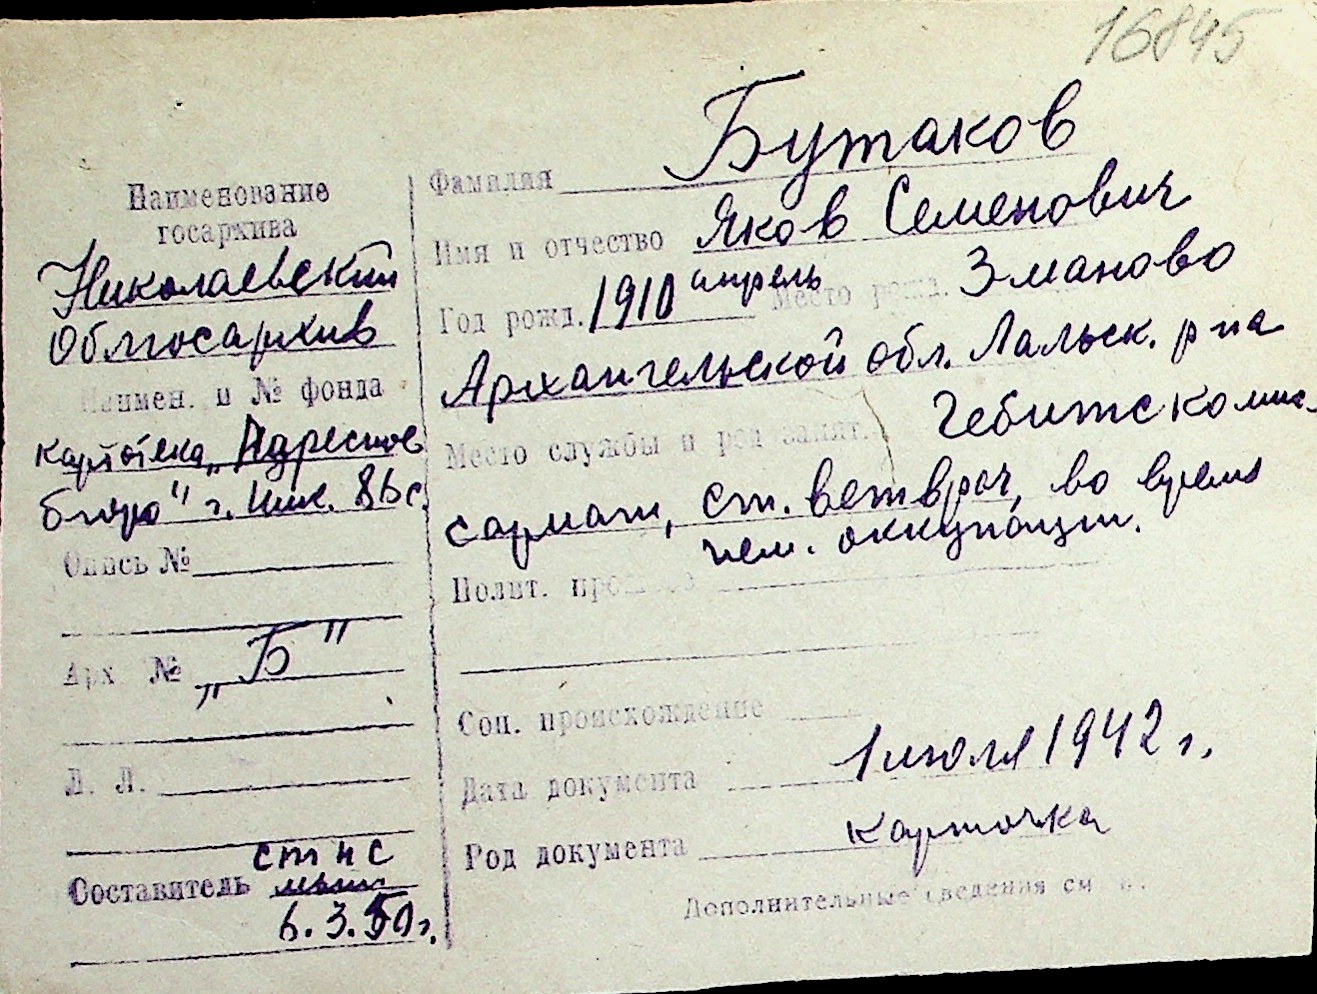 16845
Наименование
госархива
Николаевский
Облгосархив
Наимен. и № фонда
картотека „Адресное
бюро" г. Ник.
Опись №
Арх. № „Б"
Л. Л.
Составитель ст н с
6.3.50 г.
Фамилия Бутаков
Имя и отчество Яков Семенович
Год рожд. 1910 апрель Место рожд. Зманово
Архангельской обл. Лальск. р на
Место службы и род занят. Гебитскомис
сариат, ст. ветврач, во время
нем. оккупации.
Полит.
Соц. происхождение
Дата документа 1 июля 1942 г.
Род документа карточка
Дополнительные сведения см